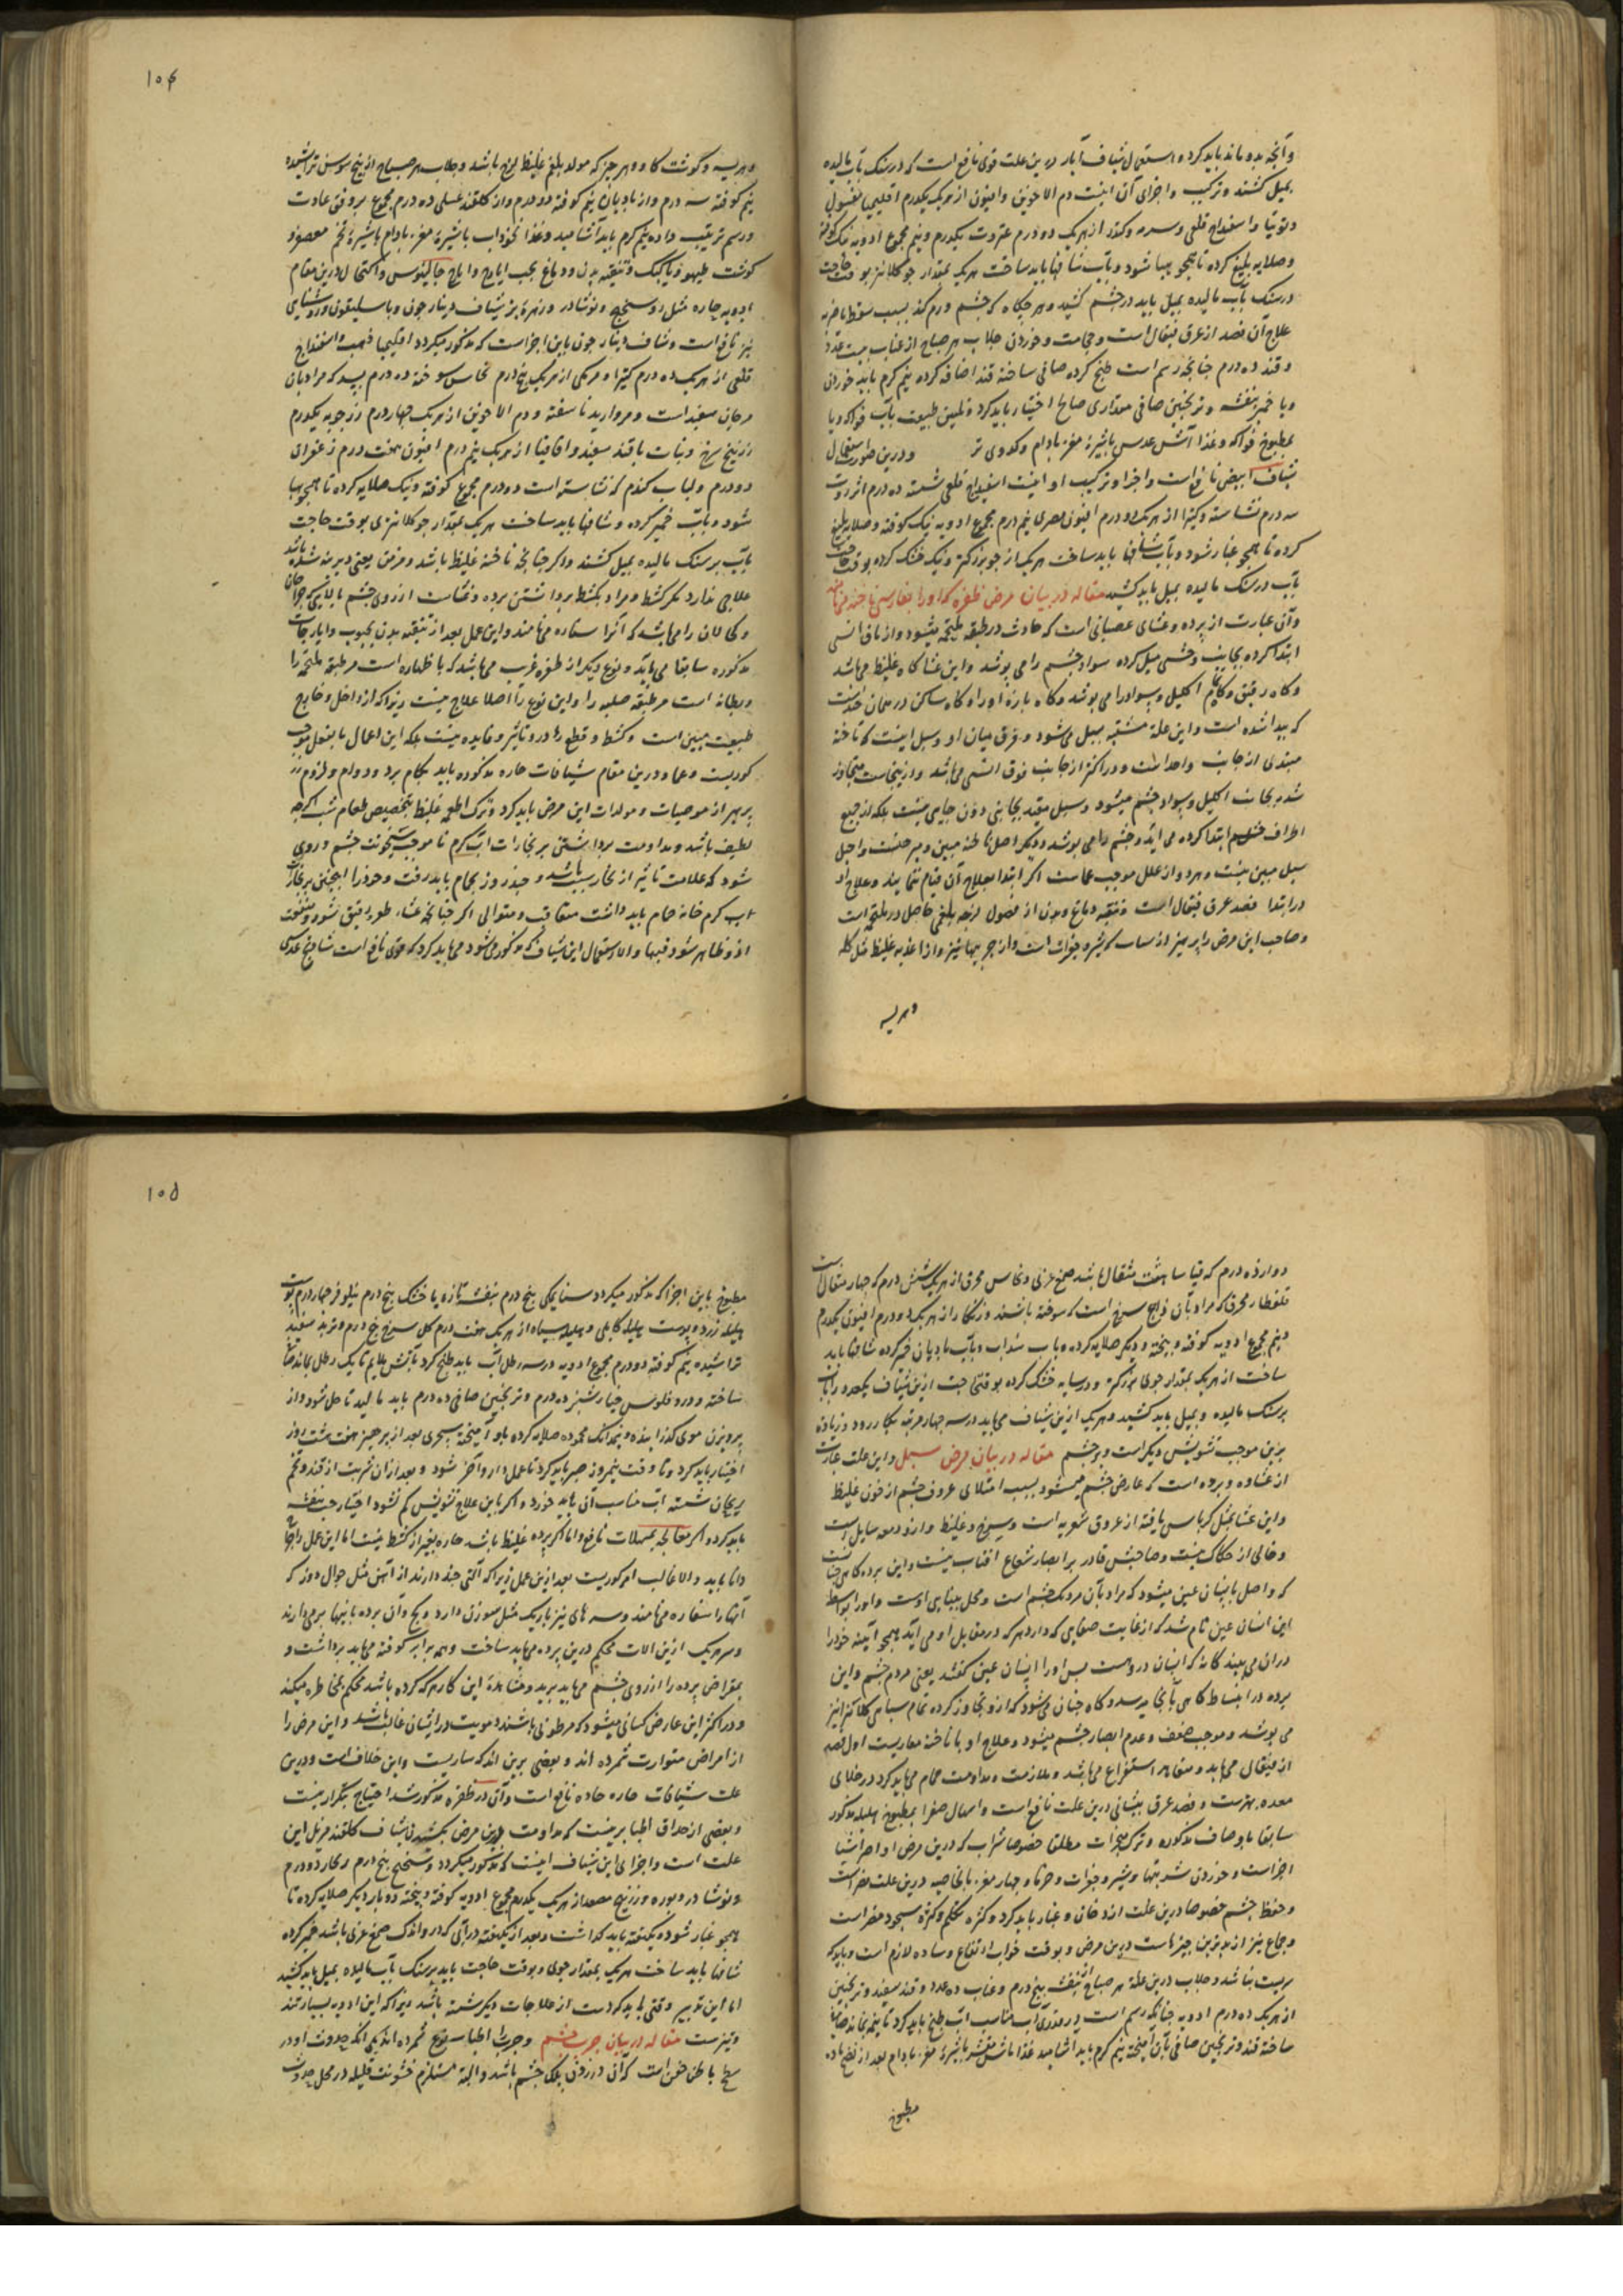 وآنچه بدو ماند باید کرد و استعمال شیاف آبار درین علت قوی نافع است که در سنک بآب مالیده
بمیل کشند وترکیب واجزای آن اینست دم الاخوین وافیون از هریک یکدرم اقلیمیا مغسول
وتوتیا واسفیداج قلعی وسرمه وکندر از هریک دو درم عنزروت یکدرم ونیم مجموع ادویه نیک کوفته
وصلایه بلیغ کرده تا همچو هبا شود وبآب شافها باید ساخت هریک بمقدار جو کلانتر بوقت حاجت
در سنک بآب مالیده بمیل باید در چشم کشید وهر چکاه که چشم ورم کند بسبب سقطه یا ضربه
علاج آن فصد از عرق قیفال است وحجامت وخوردن جلاب هر صباح از عناب بیست عدد
وقند ده درم چنانچه رسم است طبخ کرده صافی ساخته قند اضافه کرده نیم کرم باید خوردن
وبا خمیر بنفشه وترنجبین صافی مقداری صالح اختیار باید کرد وتلیین طبیعت بآب فواکه ویا
بمطبوخ فواکه وغذا آش عدس باشیرهٔ مغز بادام وکدوی تر ودرین صورت استعمال
شیاف ابیض نافع است واجزا وترکیب او اینست اسفیداج قلعی شسته ده درم انزروت
سه درم نشاسته وکتیرا از هریک دو درم افیون مصری نیم درم مجموع ادویه نیک کوفته وصلایه بلیغ
کرده تا همچو غبار شود وبآب شافها باید ساخت هریک از جو بزرکتر ونیک خشک کرده بوقت حاجت
بآب در سنک مالیده بمیل باید کشید مقاله در بیان مرض ظفره که او را بفارسی ناخنه می‌نامند
وآن عبارت از پرده وغشای عصبانی است که حادث در طبقه ملتحمه میشود واز ماق انسی
ابتدا کرده بجانب وحشی میل کرده سواد چشم را می پوشد واین غشا کاه غلیظ می‌باشد
وکاه رقیق وکاهی اکلیل وسواد را می پوشد وکاه پاره او را وکاه ساکن در همان حد است
که پیدا شده است واین علة مشتبه بسبل می‌شود وفرق میان او وسبل اینست که ناخنه
مبتدی از جانب واحد است ودر اکثر از جانب فوق انسی می‌باشد وازینجاست متجاوز
شده بجانب اکلیل وسواد چشم میشود وسبل مقید بجانبی دون جایی نیست بلکه از جمیع
اطراف چشم ابتدا کرده می آید وچشم را می پوشد ودیکر اصل ناخنه مبین ومبرهنست واصل
سبل مبین نیست وهر دو از علل موجب عماست اکر ابتدا بعلاج آن قیام ننمایند وعلاج او
در ابتدا فصد عرق قیفال است وتنقیه دماغ وبدن از فضول لزجه بلغمی حاصل در ملتحمه است
وصاحب این مرض را پرهیز از ماست که شیر وجغرات است واز چربیها نیز واز اغذیه غلیظ مثل کله
وهریسه
104
وهریسه وکوشت کاو وهر چیز که مولد بلغم غلیظ لزج باشد وجلاب هر صباح از بیخ سوسن تراشیده
نیم کوفته سه درم واز بادیان نیم کوفته دو درم واز کلقند عسلی ده درم مجموع بر وفق عادت
ورسم ترتیب داده نیم کرم باید آشامید وغذا نخوداب باشیرهٔ مغز بادام یا شیرهٔ تخم معصفر و
کوشت طیهو ویا کبک وتنقیه بدن ودماغ بحب ایارج وایارج جالینوس واکتحال درین مقام
ادویه حاره مثل روسختج ونوشادر وزهرهٔ بز شیاف دینار جون وباسلیقون وروشنایی
نیز نافع است وشاف دینار جون باین اجزاست که مذکور میکردد اقلیمیا فضه واسفیداج
قلعی از هریک ده درم کتیرا ومرمکی از هریک پنج درم نحاس سوخته ده درم بسد که مراد بآن
مرجان سفید است ومروارید ناسفته ودم الاخوین از هریک چهار درم زرچوبه یکدرم
زرنیخ سرخ ونبات یا قند سفید واقاقیا از هریک نیم درم افیون هفت درم زعفران
دو درم ولباب کندم که نشاسته است ده درم مجموع کوفته ونیک صلایه کرده تا همچو هبا
شود وبآب خمیر کرده وشافها باید ساخت هریک بمقدار جو کلانتری بوقت حاجت
بآب بر سنک مالیده بمیل کشند واکر چنانچه ناخنه غلیظ باشد ومزمن یعنی دیرینه شده باشد
علاجی ندارد مکر کشط ومراد بکشط برداشتن پرده وغشاست از روی چشم بآلتی که جراحان
وکحالان را می‌باشد که آنرا سناره می‌نامند واین عمل بعد از تنقیه بدن بحبوب وایارجات
مذکوره سابقا می‌باید ونوع دیکر از ظفره غرب می‌باشد که با ظهاره است مر طبقه ملتحمه را
وبطانه است مر طبقه صلبه را واین نوع را اصلا علاج نیست زیرا که از داخل وخارج
طبیعت مبین است وکشط وقطع را در او تاثیر وفایده نیست بلکه این اعمال بالفعل موجب
کوریست وعما ودرین مقام شیافات حاره مذکوره باید بکام برد ودوام ولزوم در
پرهیز از موصیات ومولدات این مرض باید کرد وترک اطعمه غلیظ بتخصیص طعام شب اکرچه
لطیف باشد ومداومت برداشتن بر بخارات آب کرم تا موجب سخونت چشم وروی
شود که علامت تاثیر از بخار بسیار باشد وچند روز بحمام باید رفت وخود را همچنین بر بخار
آب کرم خانه حمام باید داشت متعاقب ومتوالی اکر چنانچه غشاء ظفره رقیق شود ومنفعت
ازو ظاهر شود فبها والا استعمال این شیاف که مذکور می‌شود می‌باید کرد که قوی نافع است شادنج عدسی
دوازده درم که قیاسا هشت مثقال باشد صمغ عربی ونحاس محرق از هریک شش درم که چهار مثقال است
قلقطار محرق که مراد بآن زاج سرخ است که سوخته باشند وزنکار از هریک دو درم افیون یکدرم
ونیم مجموع ادویه کوفته وبیخته ودیکر صلایه کرده وبآب سداب وبآب بادیان خمیر کرده شافها باید
ساخت از هریک بمقدار جوی بزرکتر ودر سایه خشک کرده بوقت حاجت ازین شیاف یکعدد را بآب
بر سنک مالیده وبمیل باید کشید وهریک ازین شیاف می‌باید در سه چهار مرتبه بکار رود وزیاده
برین موجب تشویش دیکر است وبر چشم مقاله در بیان مرض سبل واین علت عبارت
از غشاوه وپرده است که عارض چشم میشود بسبب امتلای عروق چشم از خون غلیظ
واین غشا بمثل کرباس بافته از عروق شعریه است وسرخ وغلیظ وازو دمعه سایل است
وخالی از حکاک نیست وصاحبش قادر بر ابصار شعاع آفتاب نیست واین پرده کاهی چنانست
که واصل بانسان عین میشود که مراد بآن مردمک چشم است ومحل بینایی اوست واو را بواسطه
این انسان عین نام شد که از غایت صفایی که دارد هر که در مقابل او می آید همچو آیینه خود را
در آن می بیند کانه که انسان دروست پس او را انسان عین کفتند یعنی مردم چشم واین
پرده در انبساط کاهی بآنجا میرسد وکاه چنان می‌شود که ازو تجاوز کرده تمام سیاهی کلانتر نیز
می پوشد وموجب ضعف وعدم ابصار چشم میشود وعلاج او با ناخنه مقاربست اول فصد
از قیفال می‌باید ومتعاهد استفراغ می‌باشد وملازمت ومداومت حمام می‌باید کرد در خلای
معده بهترست وفصد عرق پیشانی درین علت نافع است واسهال صفرا بمطبوخ هلیله مذکور
سابقا باوصاف مذکوره وترک مبخرات مطلقا خصوصا شراب که درین مرض او اضر اشیا
اجزاست وخوردن شربتها وشیر وجغرات وخرما وچهار مغز بالخاصیه درین علت مضر است
وحفظ چشم خصوصا درین علت از دخان وغبار باید کرد وکثرهٔ تکلم وکثرهٔ سجود مضر است
وجماع نیز از بدترین چیزهاست درین مرض وبوقت خواب ارتفاع وساده لازم است وباید که
پست نباشد وجلاب درین علة هر صباح از بنفشه پنج درم وعناب ده عدد وقند سفید وترنجبین
از هریک ده درم ادویه چنانچه رسم است در مقدری آب مناسب آب طبخ باید کرد تا بنیمه بماند صاف
ساخته قند وترنجبین صافی بآن آمیخته نیم کرم باید آشامید غذا ماش مقشر باشیرهٔ مغز بادام بعد از نضج ماده
مطبوخ
105
مطبوخ باین اجزا که مذکور میکردد سنایمکی پنج درم بنفشه تازه یا خشک پنج درم نیلوفر چهار درم پوست
هلیله زرد وپوست هلیله کابلی وهلیله سیاه از هریک هفت درم کل سرخ پنج درم وتربد سفید
تراشیده نیم کوفته دو درم مجموع ادویه در سه رطل آب باید طبخ کرد بآتش ملایم تا یک رطل بماند صاف
ساخته ودرو فلوس خیارشنبر ده درم وترنجبین صافی ده درم باید مالید تا حل شود واز
پرویزن موی کذرانیده ونیمدانک محموده صلایه کرده باو آمیخته بسحری بعد از پرهیز هفت هشت روز
اختیار باید کرد وتا وقت نیمروز صبر باید کرد تا عمل دارو آخر شود وبعد از آن شربت از قند وتخم
ریحان شسته آب مناسب آن باید خورد واکر باین علاج تشویش کم نشود اختیار حب بنفشه
باید کرد واکر معالجه بمسهلات نافع واما اکر پرده غلیظ باشد چاره بغیر از کشط نیست اما این عمل را جراح
دانا باید والا غالب امر کوریست بعد ازین عمل زیرا که آلتی چند دارند از آهن مثل جوال دوز که
آنها را سناره می‌نامند وسرهای نیز باریک مثل سوزن دارد وکج وآن پرده باینها بر می‌دارند
وسر هریک ازین آلات محکم درین پرده می‌باید ساخت وهمه برابر کوفته می‌باید برداشت و
بمقراض پرده را از روی چشم می‌باید برید ومشاهدهٔ این کار هر که کرده باشد محکم بمخاطره میکند
ودر اکثر این عارض کسانی میشود که مرطوبی باشند ودمویت در ایشان غالب باشد واین مرض را
از امراض متوارث شمرده اند وبعضی برین اند که ساریست واین خلاف است ودرین
علت شیافات حاره حاده نافع است وآن در ظفره مذکور شد احتیاج بتکرار نیست
وبعضی از حذاق اطبا برینست که مداومت درین مرض بکشیدن شیاف کلقند مزیل این
علت است واجزای این شیاف اینست که مذکور میکردد روسختج پنج درم زنکار دو درم
ونوشادر وبوره وزرنیخ مصعد از هریک یکدرم مجموع ادویه کوفته وبیخته دو بار دیکر صلایه کرده تا
همچو غبار شود ویکهفته باید کذاشت وبعد از یکهفته در آبی که در او اندک صمغ عربی باشد خمیر کرده
شافها باید ساخت هریک بمقدار جوی وبوقت حاجت باید بر سنک بآب مالیده بمیل باید کشید
اما این تدبیر وقتی باید که دست از علاجات دیکر شسته باشد زیرا که این ادویه بسیار تند
وتیزست مقاله در بیان جرب چشم وجرب را اطبا سه نوع شمرده اند یکی آنکه حدوث او در
سطح باطن جفن است که آن درون پلک چشم باشد والبته مستلزم خشونت قلیله در محل حدوث